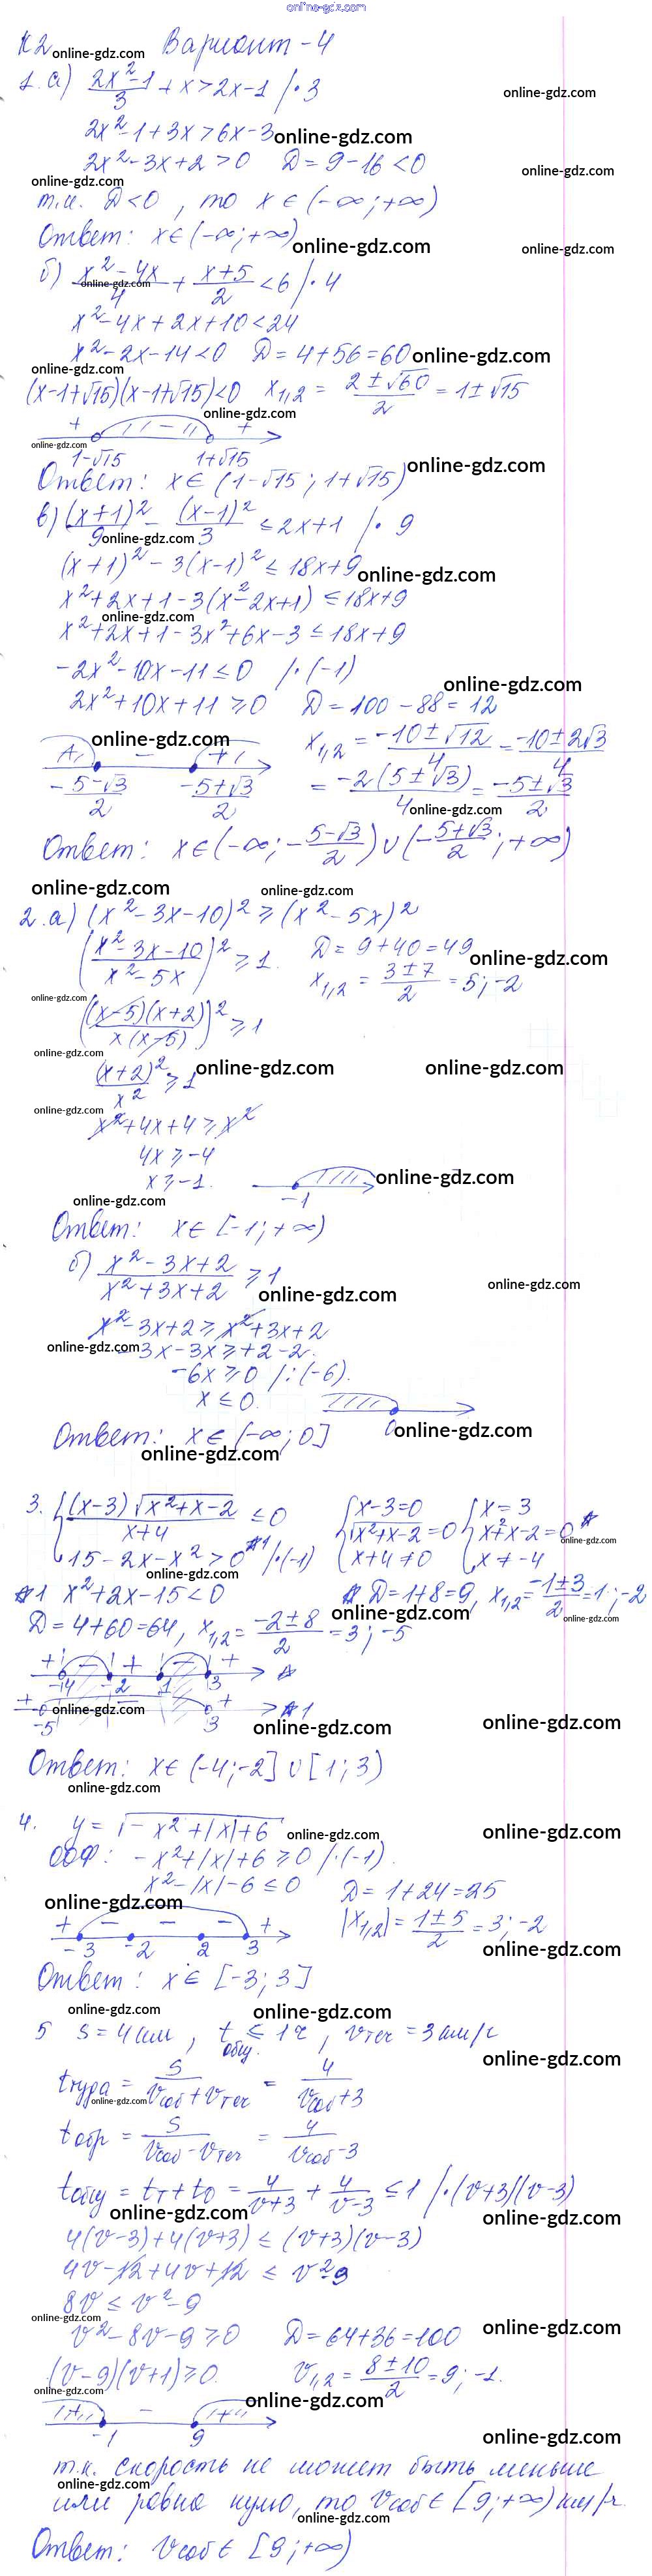 online-gdz.com
К2 online-gdz.com Вариант - 4
1. а) (2x²-1)/3 + x > 2x-1 | · 3
online-gdz.com
2x²-1+3x > 6x-3 online-gdz.com
2x²-3x+2 > 0 D = 9-16 < 0 online-gdz.com
online-gdz.com
т.к. D < 0, то x ∈ (-∞; +∞)
Ответ: x ∈ (-∞; +∞) online-gdz.com online-gdz.com
б) (x²-4x)/4 + (x+5)/2 < 6 | · 4
online-gdz.com
x²-4x+2x+10 < 24
x²-2x-14 < 0 D = 4+56 = 60 online-gdz.com
online-gdz.com
(x-1+√15)(x-1+√15) < 0 x₁,₂ = (2±√60)/2 = 1±√15
online-gdz.com
+ - +
online-gdz.com
1-√15 1+√15
Ответ: x ∈ (1-√15; 1+√15) online-gdz.com
в) (x+1)²/9 - (x-1)²/3 ≤ 2x+1 | · 9
online-gdz.com
(x+1)² - 3(x-1)² ≤ 18x+9 online-gdz.com
x²+2x+1-3(x²-2x+1) ≤ 18x+9
online-gdz.com
x²+2x+1-3x²+6x-3 ≤ 18x+9
-2x²-10x-11 ≤ 0 | · (-1)
online-gdz.com
2x²+10x+11 ≥ 0 D = 100-88 = 12
online-gdz.com x₁,₂ = (-10±√12)/4 = (-10±2√3)/4
- +
-(5-√3)/2 -(5+√3)/2 = -2(5±√3)/4 = (-5±√3)/2
online-gdz.com
Ответ: x ∈ (-∞; -(5-√3)/2) ∪ (-(5+√3)/2; +∞)
online-gdz.com online-gdz.com
2. а) (x²-3x-10)² ≥ (x²-5x)²
((x²-3x-10)/(x²-5x))² ≥ 1. D = 9+40 = 49 online-gdz.com
x₁,₂ = (3±7)/2 = 5; -2
online-gdz.com
((x-5)(x+2)/(x(x-5)))² ≥ 1
online-gdz.com
(x+2)²/x² ≥ 1 online-gdz.com online-gdz.com
online-gdz.com
x²+4x+4 ≥ x²
4x ≥ -4
x ≥ -1. online-gdz.com
-1
online-gdz.com
Ответ: x ∈ [-1; +∞)
б) (x²-3x+2)/(x²+3x+2) ≥ 1
online-gdz.com online-gdz.com
x²-3x+2 ≥ x²+3x+2
online-gdz.com -3x-3x ≥ +2-2.
-6x ≥ 0 | : (-6).
x ≤ 0.
0 online-gdz.com
Ответ: x ∈ (-∞; 0]
online-gdz.com
3. { (x-3)√(x²+x-2)/(x+4) ≤ 0 { x-3=0 { x=3
15-2x-x² > 0 *1 | · (-1) √(x²+x-2) = 0 x²+x-2=0 *
online-gdz.com
x+4 ≠ 0 x ≠ -4
online-gdz.com
*1 x²+2x-15 < 0 * D = 1+8 = 9, x₁,₂ = (-1±3)/2 = 1; -2
online-gdz.com online-gdz.com
D = 4+60 = 64, x₁,₂ = (-2±8)/2 = 3; -5
+ - + - + *
-4 -2 1 3
+ online-gdz.com + *1
-5 3
online-gdz.com online-gdz.com
Ответ: x ∈ (-4; -2] ∪ [1; 3)
online-gdz.com
4. y = √(-x²+|x|+6) online-gdz.com online-gdz.com
ООФ: -x²+|x|+6 ≥ 0 | · (-1).
x²-|x|-6 ≤ 0 D = 1+24 = 25
online-gdz.com
+ - - - + |x₁,₂| = (1±5)/2 = 3; -2
-3 -2 2 3 online-gdz.com
Ответ: x ∈ [-3; 3]
online-gdz.com online-gdz.com
5 S = 4 км, t общ. ≤ 1 ч, v теч = 3 км/ч
online-gdz.com
t туда = S/(v соб + v теч) = 4/(v соб + 3)
online-gdz.com
t обр = S/(v соб - v теч) = 4/(v соб - 3)
t общ = tт + tо = 4/(v+3) + 4/(v-3) ≤ 1 | · (v+3)(v-3)
online-gdz.com online-gdz.com
4(v-3)+4(v+3) ≤ (v+3)(v-3)
4v-12+4v+12 ≤ v²-9
8v ≤ v²-9
online-gdz.com
v²-8v-9 ≥ 0 D = 64+36 = 100 online-gdz.com
(v-9)(v+1) ≥ 0. v₁,₂ = (8±10)/2 = 9; -1.
online-gdz.com online-gdz.com
+ - +
-1 9 online-gdz.com
т.к. скорость не может быть меньше
online-gdz.com
или равна нулю, то v соб ∈ [9; +∞) км/ч.
online-gdz.com
Ответ: v соб ∈ [9; +∞)